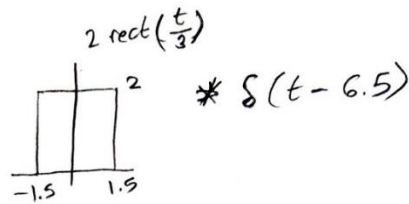 2 rect(t/3)
2
* δ(t - 6.5)
-1.5 1.5